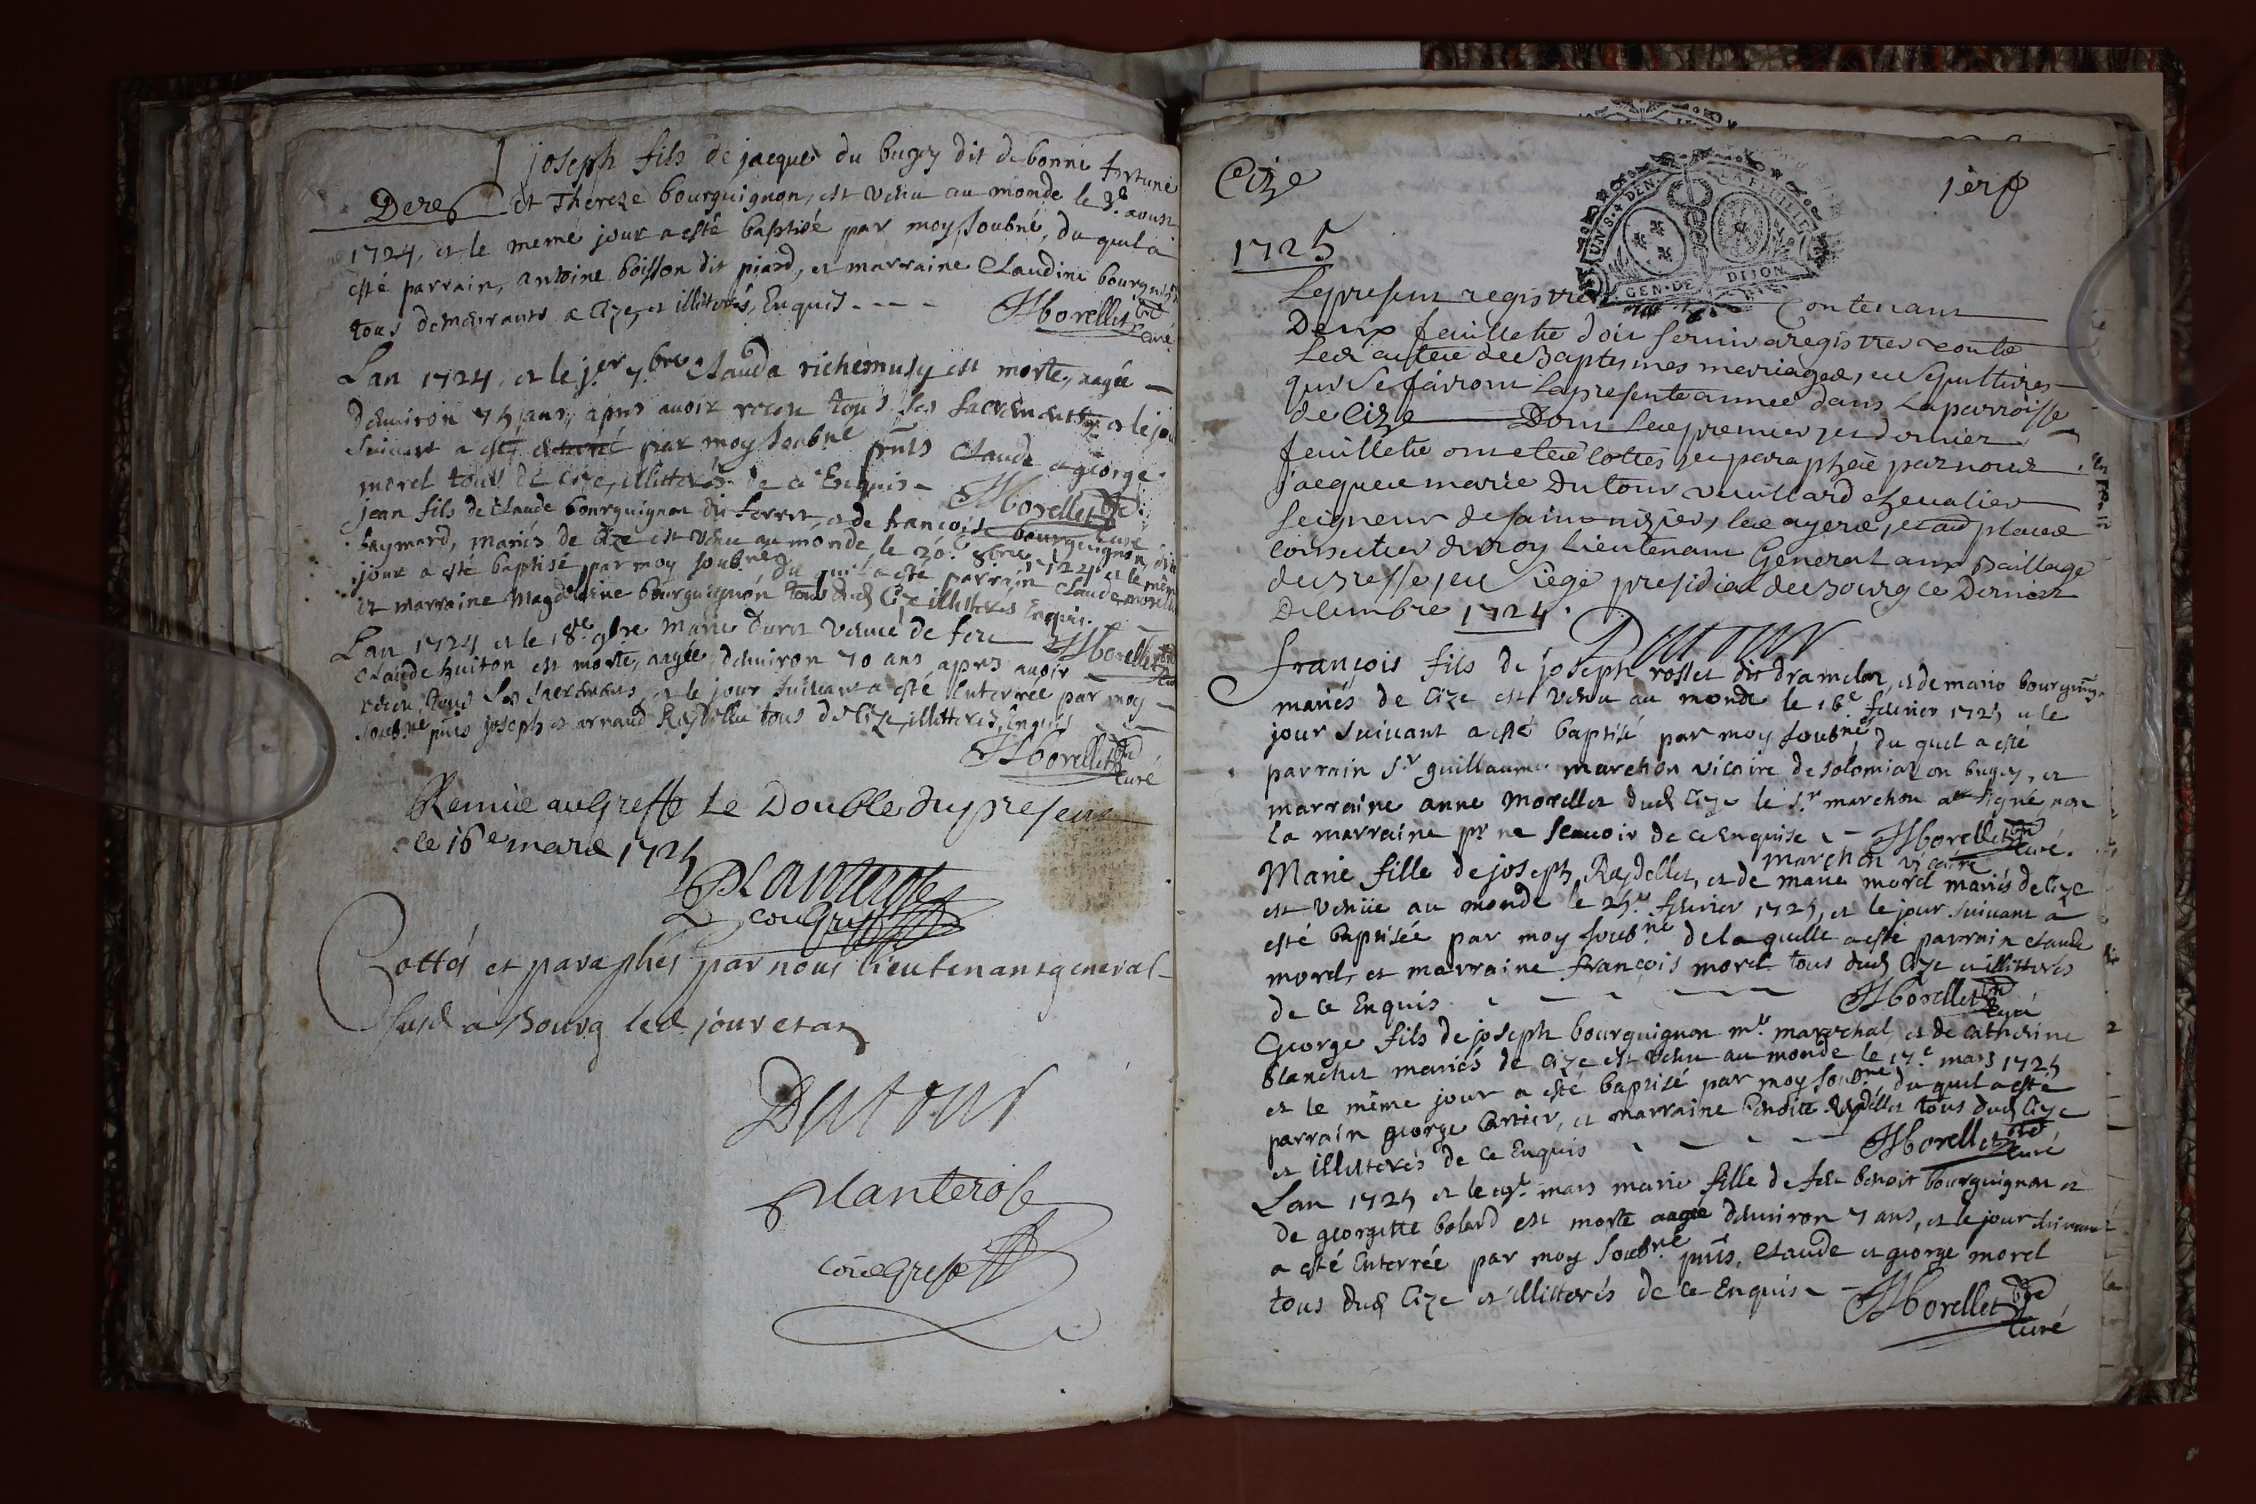 joseph fils de jacque du bugey dit de bonne fortune
Der et Thereze bourguignon, est venu au monde le 3e aoust
1724, et le meme jour a esté baptisé par moy soubné, du quel a
esté parrain, antoine boisson dit piard, et marraine Claudine bourguignon
tous demeurants a Cize, et illitterés, Enquis
HMorellet pbre curé
Lan 1724, et le jer 7.bre Clauda richemusy est morte, aagée
denviron 75 ans, apres avoir receu tous les sacrements, et le jour
suivant a esté enterré par moy soubné pnts Claude et george
morel tous de Cize, illitterés de ce Enquis
HMorellet pbre curé
jean fils de Claude bourguignon dit ferret, et de françoise bourguignon dit
faymard, mariés de Cize est venu au monde le 20e 8bre 1724 et le même
jour a esté baptisé par moy soubné du quel a esté parrain Claude morellet
et marraine Magdelaine bourguignon tous dud Cize illitterés Enquis.
HMorellet pbre curé
Lan 1724 et le 18e 9bre Marie duret veuve de feu
Claude huiton est morte, aagée denviron 70 ans apres avoir
receu tous les sacrements, et le jour suivant a esté enterrée par moy
soubné pnts joseph et arnaud Reydellet tous de Cize, illitterés, Enquis
HMorellet pbre curé
Remie au Greffe le Double du present
ce 16e mars 1725
Planterose
com Greff
Cottés et paraphés par nous lieutenant general
susd a Bourg lesd jour et an
Dutour
Planterose
com Greffe
Cize
1er p
1725
UN S. 4 DEN. LA FEUILLE
GEN. DE DIJON
Le present registre Contenant
Deux feuillets doit servir a registrer toute
les actes de Baptesmes mariages, et sepultures
qui se fairont la presente annee dans la parroisse
de Cize Dont les premier et dernier
feuillets ont eté cottés et paraphés par nous
jacques marie Dutour vuillard chevalier
seigneur de saint nizier, les ayers, et au places
conseiller du roy Lieutenant General aux Baillage
de Bresse, et Siege presidial de Bourg ce Dernier
Decembre 1724.
Dutour
françois fils de joseph rosset dit dramelar, et de marie bourguignon
mariés de Cize est venu au monde le 16e fevrier 1725 et le
jour suivant a esté baptisé par moy soubné, du quel a esté
parrain Sr guillaume marchon vicaire de solomiat en bugey, et
marraine anne Morellet dud Cize le Sr marchon a signé non
la marraine pr ne scavoir de ce Enquise
HMorellet pbre curé.
marchon vicaire
Marie fille de joseph Reydellet, et de marie morel mariés de Cize
est venüe au monde le 25e fevrier 1725, et le jour suivant a
esté baptisée par moy soubné de la quelle a esté parrain claude
morel, et marraine françois morel tous dud Cize et illitterés
de ce Enquis
HMorellet pbre curé
George fils de joseph bourguignon mre marechal, et de catherine
blanchet mariés de Cize est venu au monde le 17e mars 1725
et le même jour a esté baptisé par moy soubné, du quel a esté
parrain george Cartier, et marraine benoite Reydellet tous dud Cize
et illitterés de ce Enquis
HMorellet pbre curé
Lan 1725 et le mars marie fille de feu benoit bourguignon et
de georgette bolard est morte aagée denviron 7 ans, et le jour suivant
a esté Enterrée par moy soubné pnts, Claude et george morel
tous dud Cize et illitterés de ce Enquis
HMorellet pbre curé